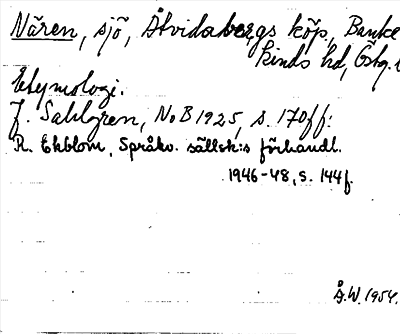 Nären, sjö, Åtvidabergs köp, Banke
kinds hd, Östg.
Etymologi.
J. Sahlgren, NoB 1925, s. 170ff.
R. Ekblom, Språkv. sällsk:s förhandl.
1946-48, s. 144f.
Å.W. 1954.